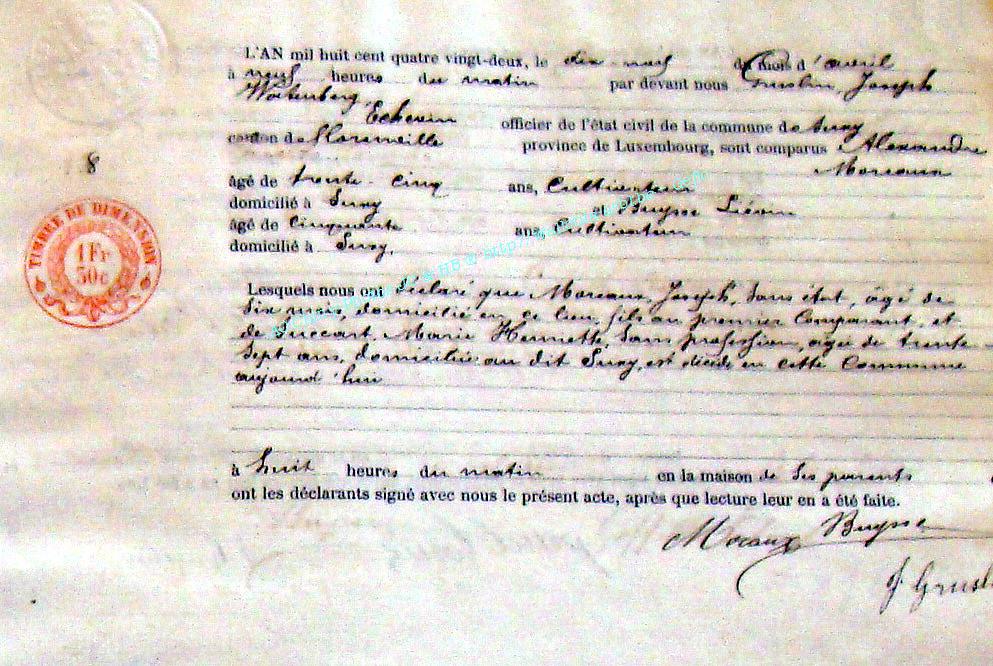 L'AN mil huit cent quatre vingt-deux, le dix-neuf du mois d'avril
à neuf heures du matin par devant nous Gruslin, Joseph
Echevin officier de l'état civil de la commune de Suxy
canton de Florenville province de Luxembourg, sont comparus Alexandre
Moreaux
8
âgé de trente-cinq ans, Cultivateur
domicilié à Suxy et Buysse Liévin
âgé de Cinquante ans Cultivateur
domicilié à Suxy,
TIMBRE DE DIMENSION
1 Fr
50c
Lesquels nous ont déclaré que Moreaux Joseph, sans état, âgé de
six mois, domicilié en ce lieu, fils au premier Comparant, et
de Succart, Marie Henriette, sans profession, âgée de trente
sept ans, domiciliée au dit Suxy, est décédé en cette Commune
aujourd'hui
à huit heures du matin en la maison de ses parents
ont les déclarants signé avec nous le présent acte, après que lecture leur en a été faite.
Moreaux Buysse
J Grusl